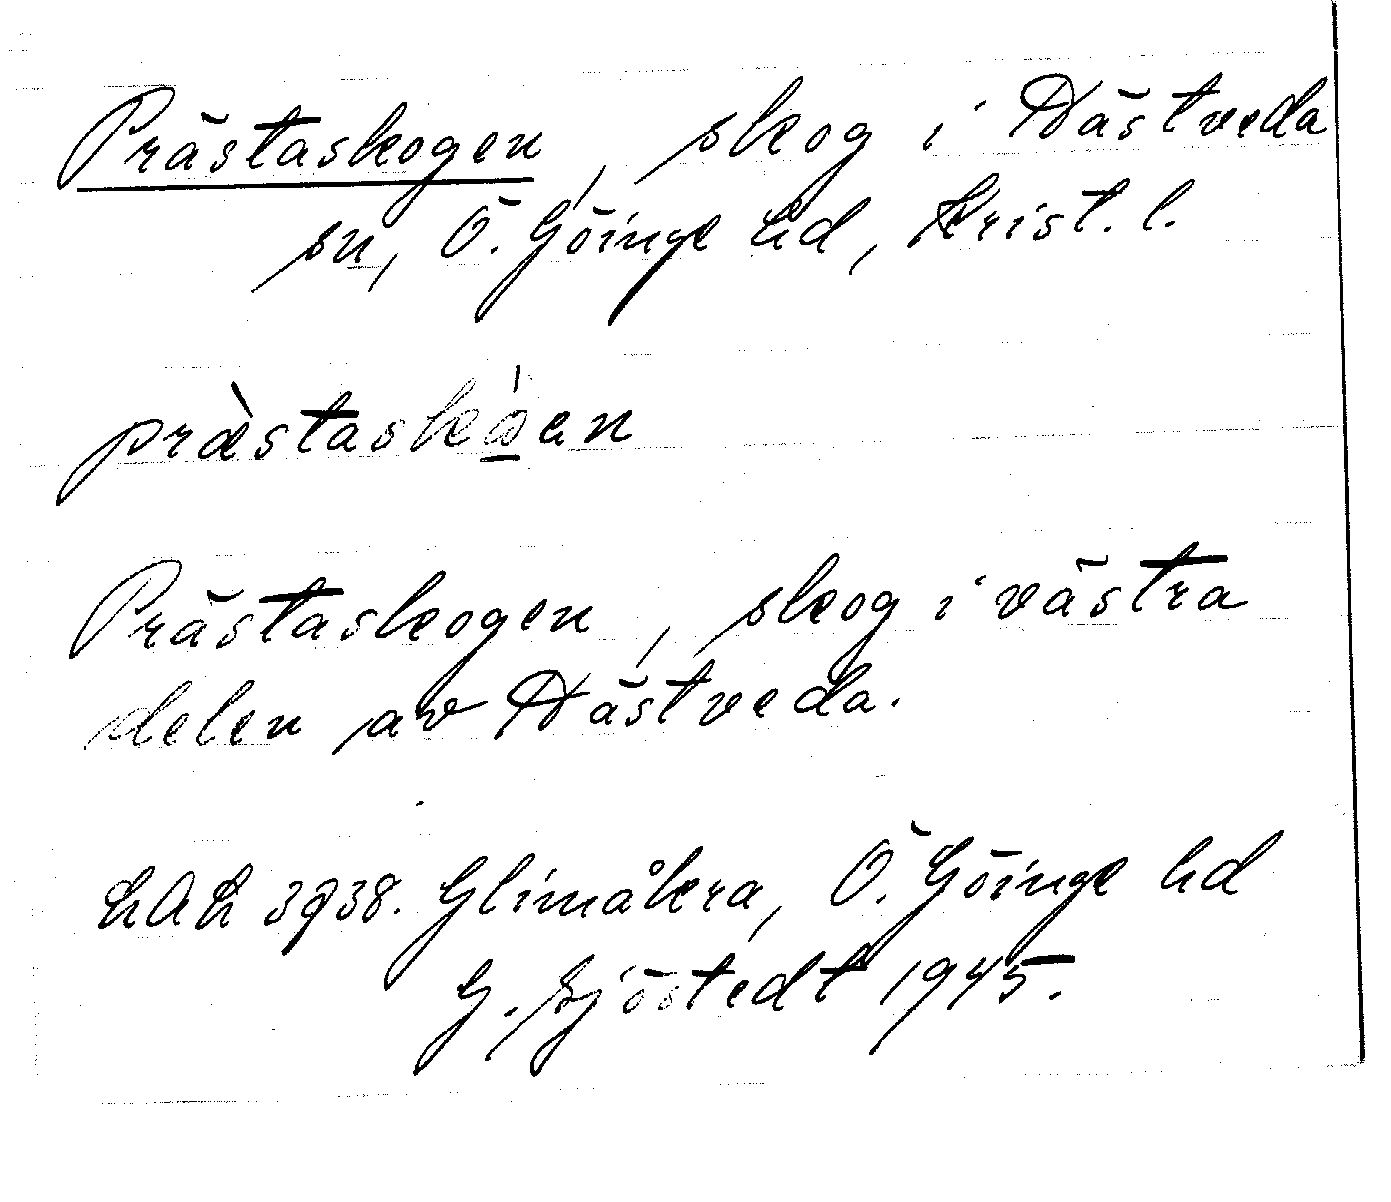 Prästaskogen, skog i Hästveda
sn, Ö. Göinge hd, Krist. l.
præ̀staskǫ́en
Prästaskogen, skog i västra
delen av Hästveda.
LAL 3938. Glimåkra, Ö. Göinge hd
G. Sjöstedt 1945.